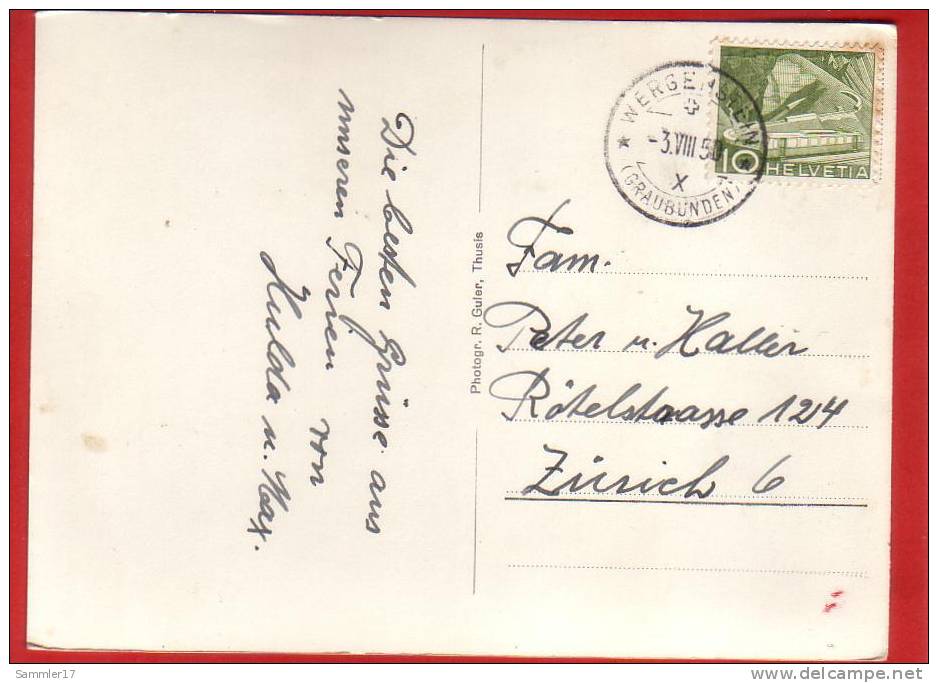 Die besten Grüsse aus
unseren Ferien von
Hulda u. Max.
Photogr. R. Guler, Thusis
WERGENSTEIN
-3.VIII 50
X
(GRAUBÜNDEN)
10 HELVETIA
Fam.
Peter u. Haller
Rötelstrasse 124
Zürich 6
Sammler17
www.delcampe.net